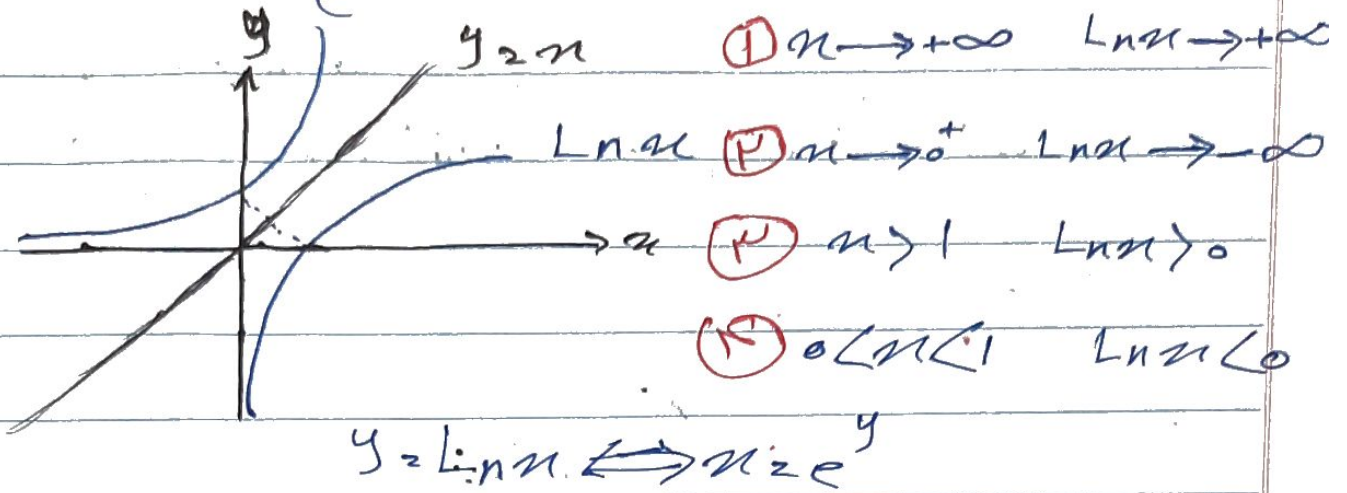 y
y = x ① x → +∞ Ln x → +∞
Ln x ② x → 0⁺ Ln x → -∞
x ۳ x > 1 Ln x > 0
۴ 0 < x < 1 Ln x < 0
y = Ln x ⟺ x = e^y